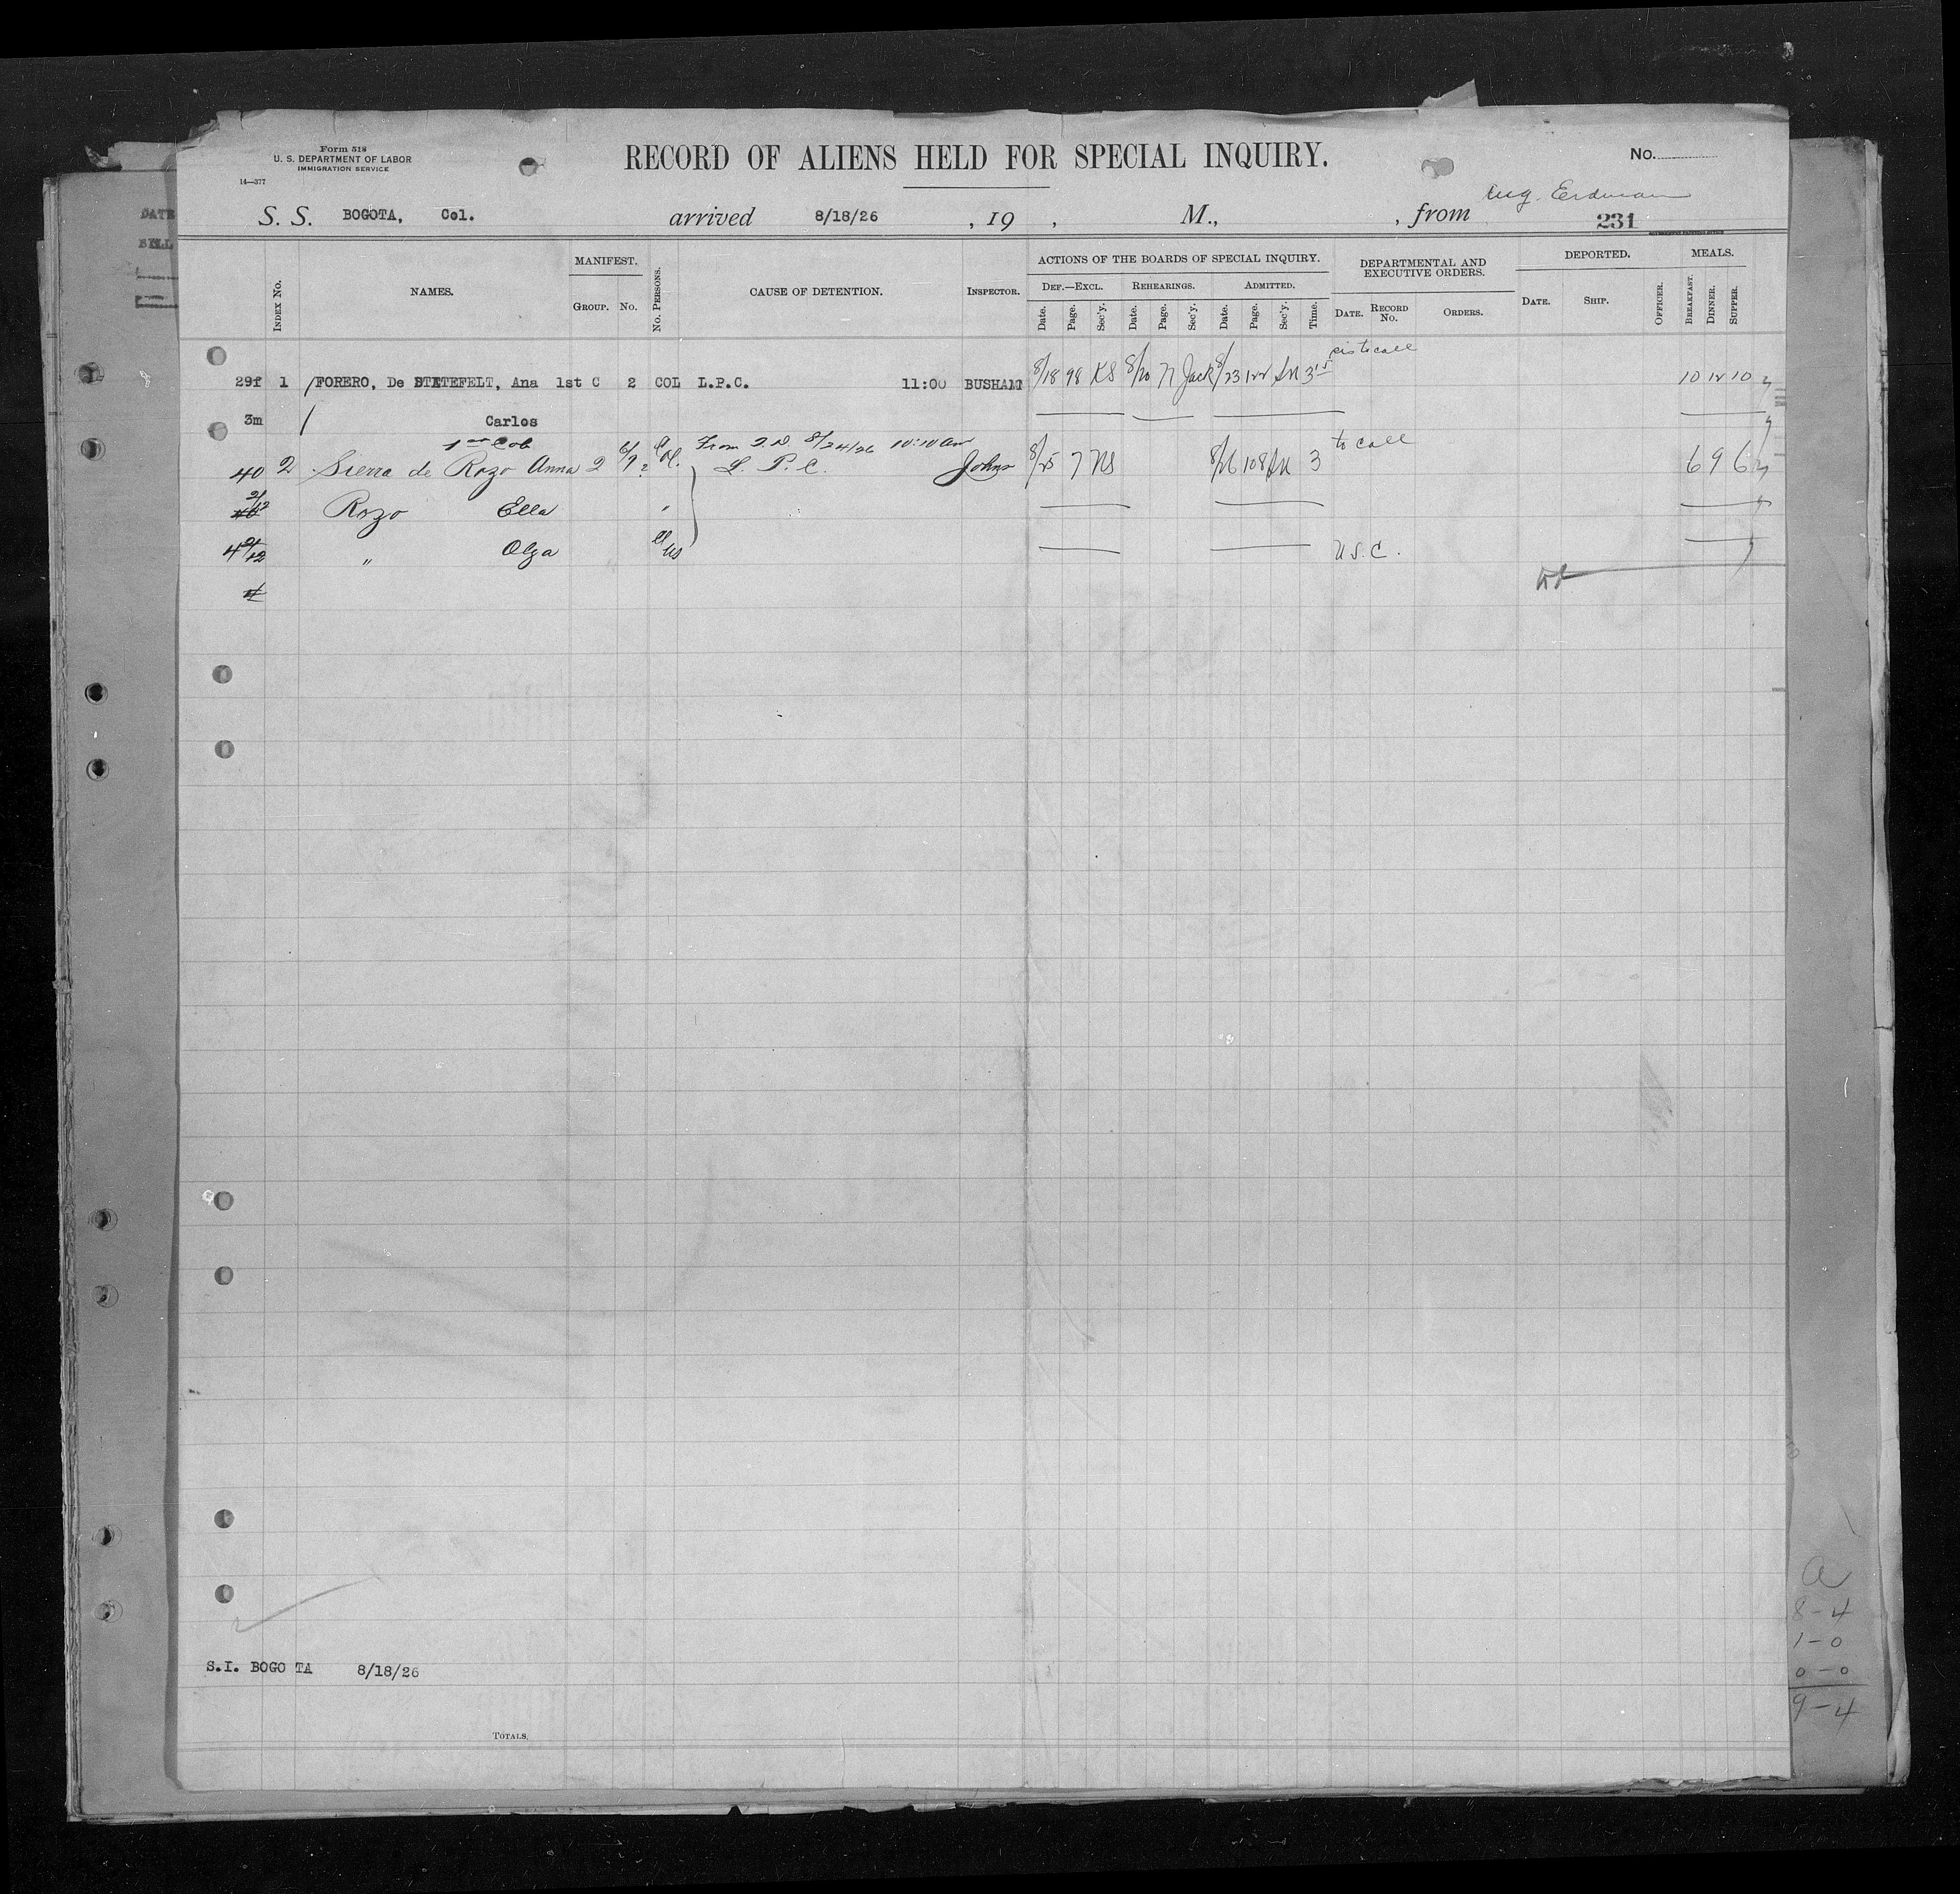 Form 518
U. S. DEPARTMENT OF LABOR
IMMIGRATION SERVICE
14—377
RECORD OF ALIENS HELD FOR SPECIAL INQUIRY.
No.
Erdman
S. S. BOGOTA, Col. arrived 8/18/26, 19 , M., , from 231
DATE
Index No. NAMES. MANIFEST. Group. No. No. Persons. CAUSE OF DETENTION. Inspector. ACTIONS OF THE BOARDS OF SPECIAL INQUIRY. Def.—Excl. Date. Page. Sec'y. Rehearings. Date. Page. Sec'y. Admitted. Date. Page. Sec'y. Time. DEPARTMENTAL AND EXECUTIVE ORDERS. Date. Record No. Orders. DEPORTED. Date. Ship. Officer. MEALS. Breakfast. Dinner. Supper.
to call
29f 1 FORERO, De Ana 1st C 2 COL L.P.C. 11:00 8/18 98 KS 8/20 71 Jack 8/23 122 3 15 10 12 10
3m Carlos
1st Cab From 8/24/26 10:10 am to call
40 2 Sierra de Rozo Anna 2 6/7 2 Col. L. P. C. Johns 8/25 7 NS 8/26 108 3 6 9 6
Rozo Ella "
" Olga US U.S.C.
S.I. BOGOTA 8/18/26
Totals.
a
8-4
1-0
0-0
9-4